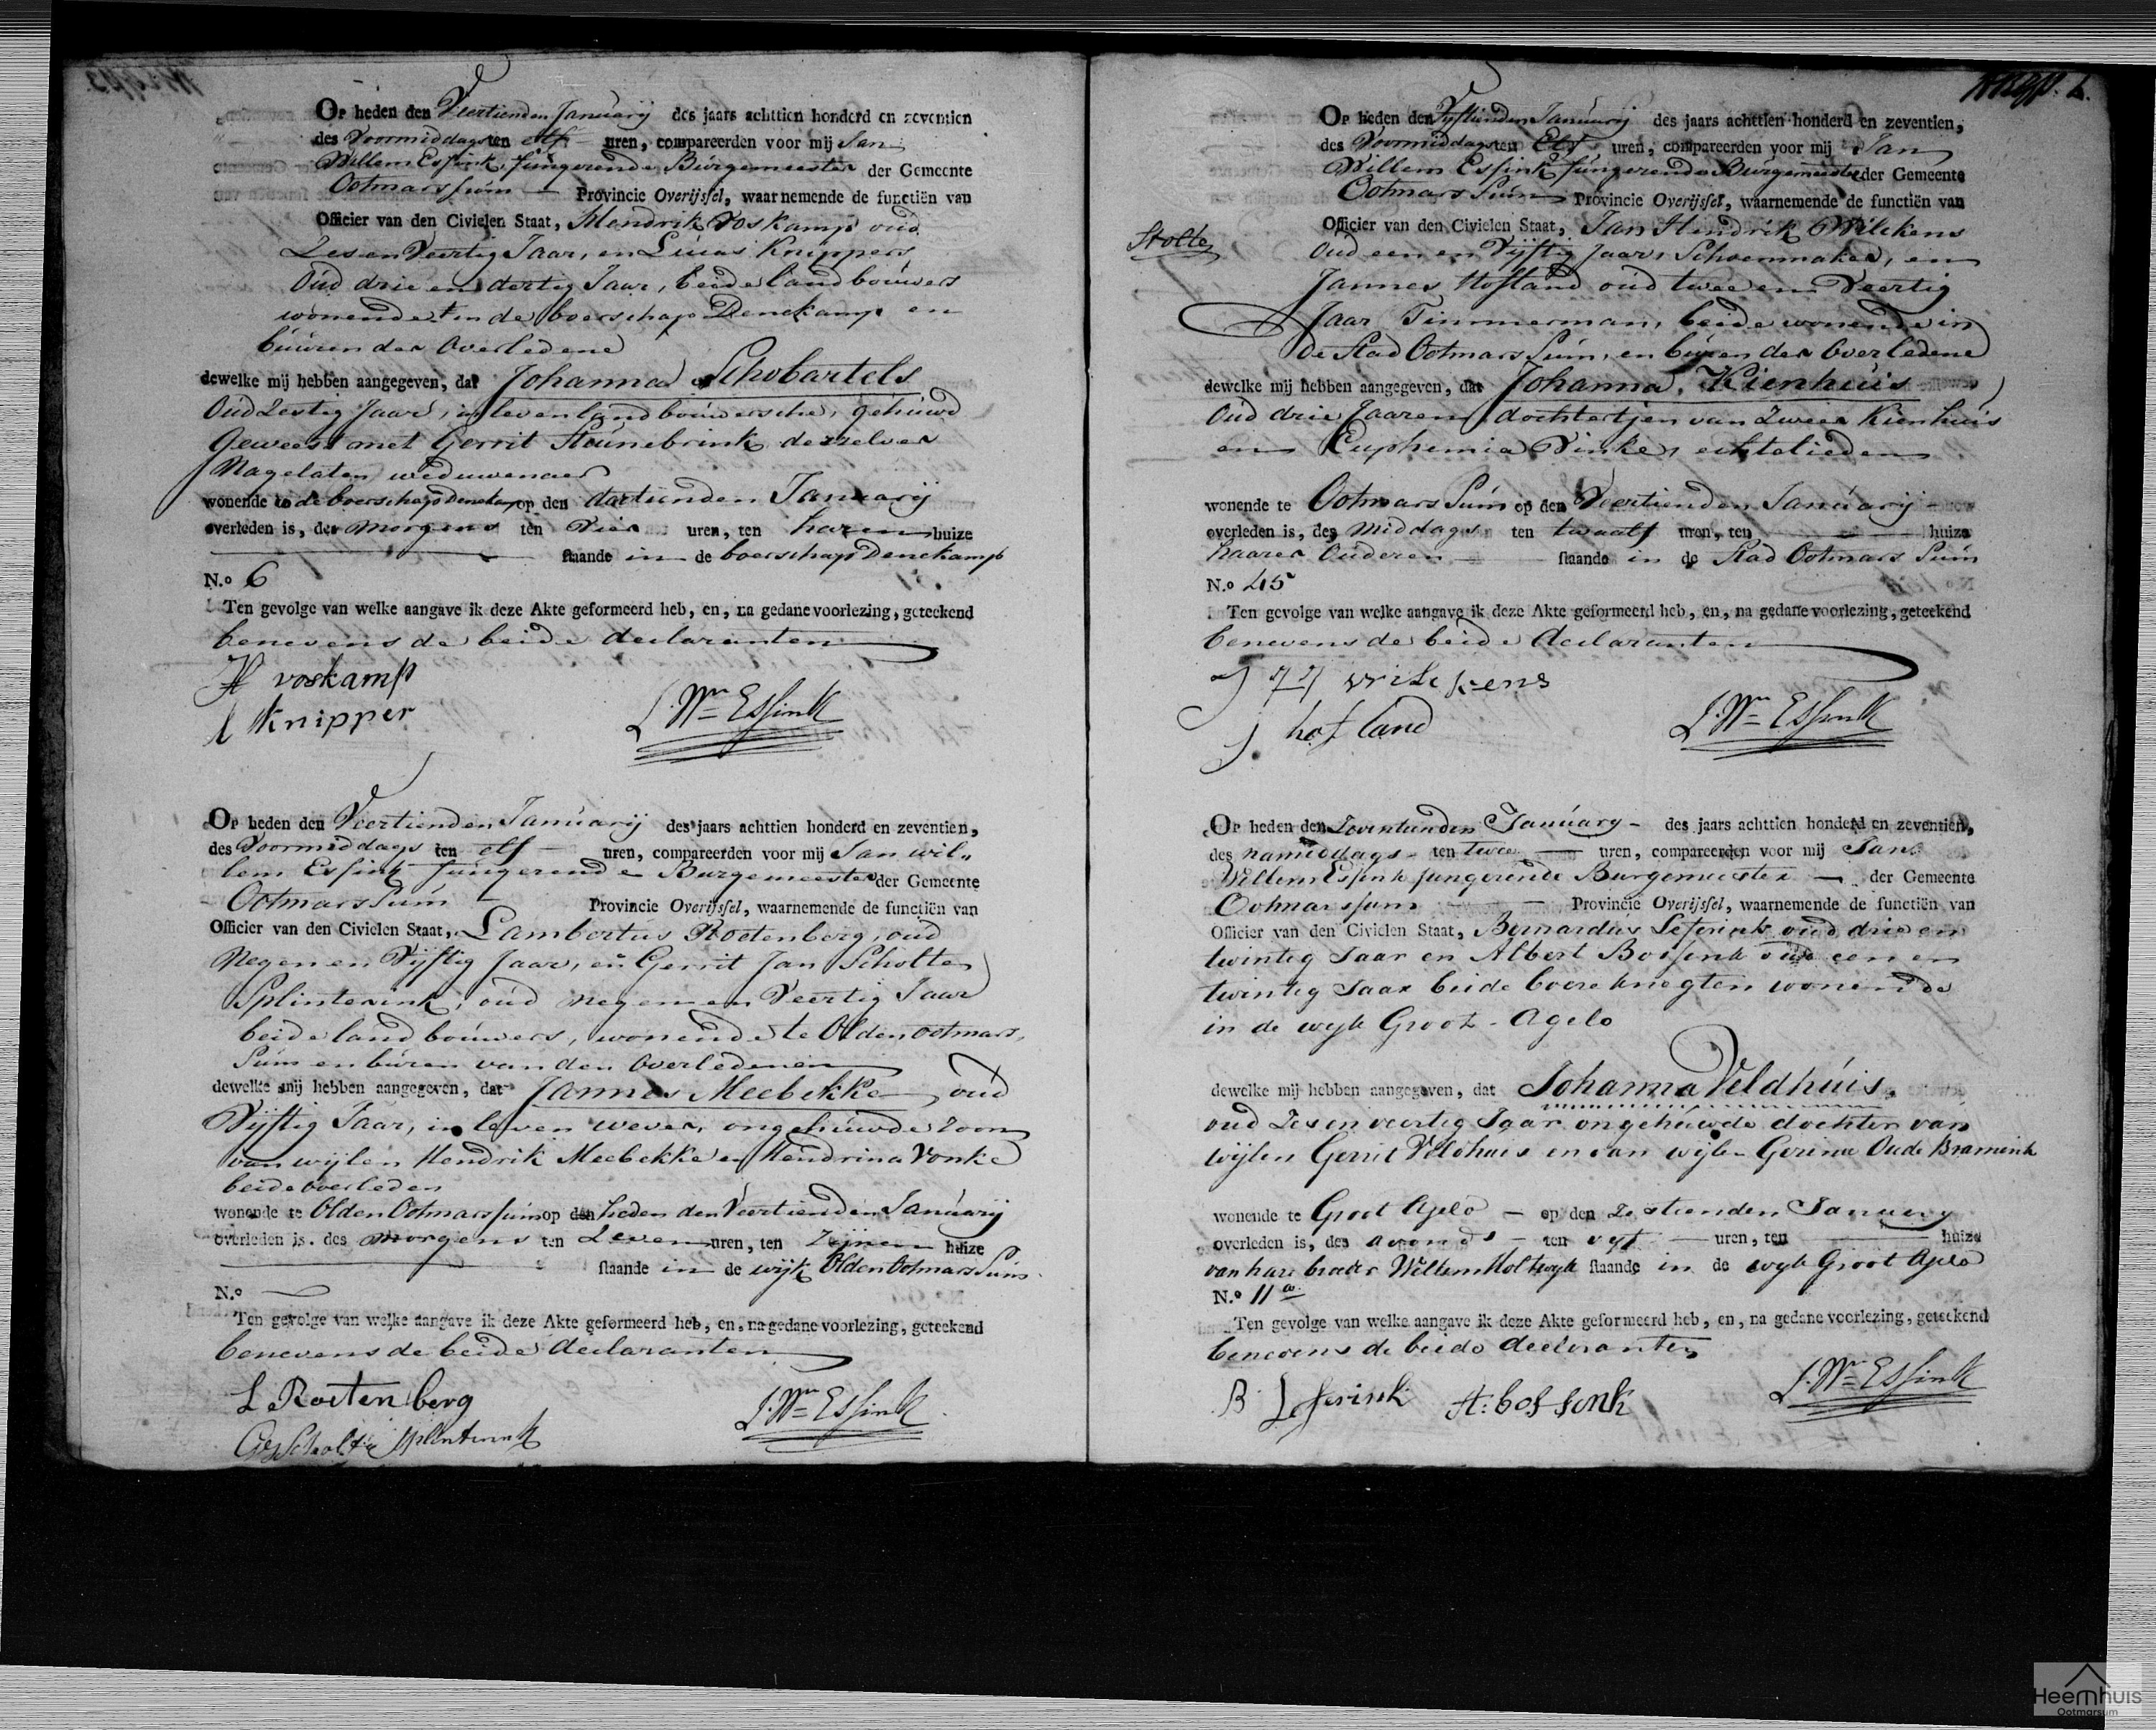 Op heden den Veertienden Januarij des jaars achttien honderd en zeventien
des Voormiddags ten elf uren, compareerden voor mij Jan
Willem Essink, fungerende Burgemeester der Gemeente
Ootmarssum Provincie Overijssel, waarnemende de functiën van
Officier van den Civielen Staat, Hendrik Voskamp oud
Zes en Veertig Jaar, en Lucas Knippers
Oud drie en dertig Jaar, beide landbouwers
wonende in de boerschap Denekamp en
buuren der Overledene
dewelke mij hebben aangegeven, dat Johanna Schobartels
Oud Zestig Jaar, in leven landbouwersche, gehuwd
Geweest met Gerrit Steunebrink deszelver
Nagelaten weduwenaer
wonende te de boerschap Denekamp op den dertienden Januarij
overleden is, des morgens ten Vier uren, ten haren huize
staande in de boerschap Denekamp
N.o 6
Ten gevolge van welke aangave ik deze Akte geformeerd heb, en, na gedane voorlezing, geteekend
benevens de beide declaranten
H voskamp
l Knipper
J. Wm Essink
Op heden den Veertienden Januarij des jaars achttien honderd en zeventien,
des Voormiddags ten elf uren, compareerden voor mij Jan Wil„
lem Essink fungerende Burgemeester der Gemeente
Ootmarssum Provincie Overijssel, waarnemende de functiën van
Officier van den Civielen Staat, Lambertus Roetenberg, oud
Negen en Vijftig Jaar, en Gerrit Jan Scholte
Splinterink, oud negen en Veertig Jaar
beide landbouwers, wonende te Olden ootmars,
Sum en buren van den Overledenen
dewelke mij hebben aangegeven, dat Jannes Meebekke oud
Vijftig Jaar, in leven wever, ongehuwde Zoon
van wijlen Hendrik Meebekke en Hendrina Vonke
beide overleden
wonende te Olden Ootmarssum op den heden den Veertienden Januarij
overleden is. des morgens ten Zeven uren, ten Zijnen huize
staande in de wijk Olden Ootmars Sum
N.o
Ten gevolge van welke aangave ik deze Akte geformeerd heb, en, na gedane voorlezing, geteekend
benevens de beide declaranten
L Roetenberg
GJ Scholte Splinterink
J. Wm Essink
2.
Op heden den Vijftienden Januarij des jaars achttien honderd en zeventien,
des Voormiddags ten Elf uren, compareerden voor mij Jan
Willem Essink fungerende Burgemeester der Gemeente
Ootmars Sum Provincie Overijssel, waarnemende de functiën van
Officier van den Civielen Staat, Jan Hendrik Wilckens
Stolte
Oud een en Vijftig Jaar, Schoenmaker, en
Jannes Hofland oud twee en Veertig
Jaar Timmerman, beide wonende in
de Stad Ootmars Sum, en buren der Overledene
dewelke mij hebben aangegeven, dat Johanna Kienhuis
Oud drie Jaaren, dochtertjen van Zweer Kienhuis
en Euphemia Vinke, echtelieden
wonende te Ootmars Sum op den Veertienden Januarij
overleden is, des Middags ten twaalf uren, ten huize
haarer Ouderen staande in de Stad Ootmars Sum
N.o 45
Ten gevolge van welke aangave ik deze Akte geformeerd heb, en, na gedane voorlezing, geteekend
benevens de beide declaranten
J H wilckens
J. hofland
J. Wm Essink
Op heden den Zeventienden January des jaars achttien honderd en zeventien,
des namiddags ten twee uren, compareerden voor mij Jan
Willem Essink fungerende Burgemeester der Gemeente
Ootmarssum Provincie Overijssel, waarnemende de functiën van
Officier van den Civielen Staat, Bernardus Leferink oud drie en
twintig Jaar en Albert Bossink oud een en
twintig Jaar beide boere knegten wonende
in de wyk Groot-Agelo
dewelke mij hebben aangegeven, dat Johanna Veldhuis,
oud Zes en veertig Jaar ongehuwde dochter van
wijlen Gerrit Veldhuis en van wijlen Gerina Oude Bramink
wonende te Groot Agelo op den Zestienden January
overleden is, des avonds ten vyf uren, ten huize
van hare broeder Willem Holtwyk staande in de wyk Groot Agelo
N.o 11 a.
Ten gevolge van welke aangave ik deze Akte geformeerd heb, en, na gedane voorlezing, geteekend
benevens de beide declaranten
B Leferink A: bossink
J. Wm Essink
Heemhuis
Ootmarsum